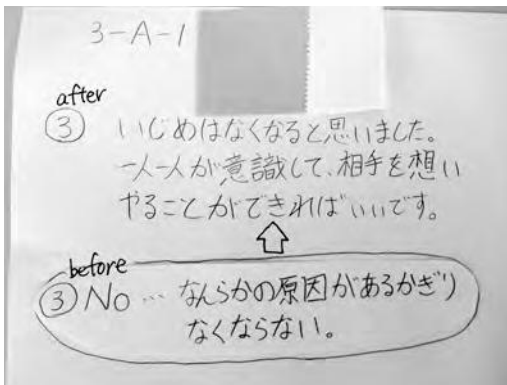 3-A-1
after
③ いじめはなくなると思いました。
一人一人が意識して、相手を想い
やることができればいいです。
before
③ No … なんらかの原因があるかぎり
なくならない。